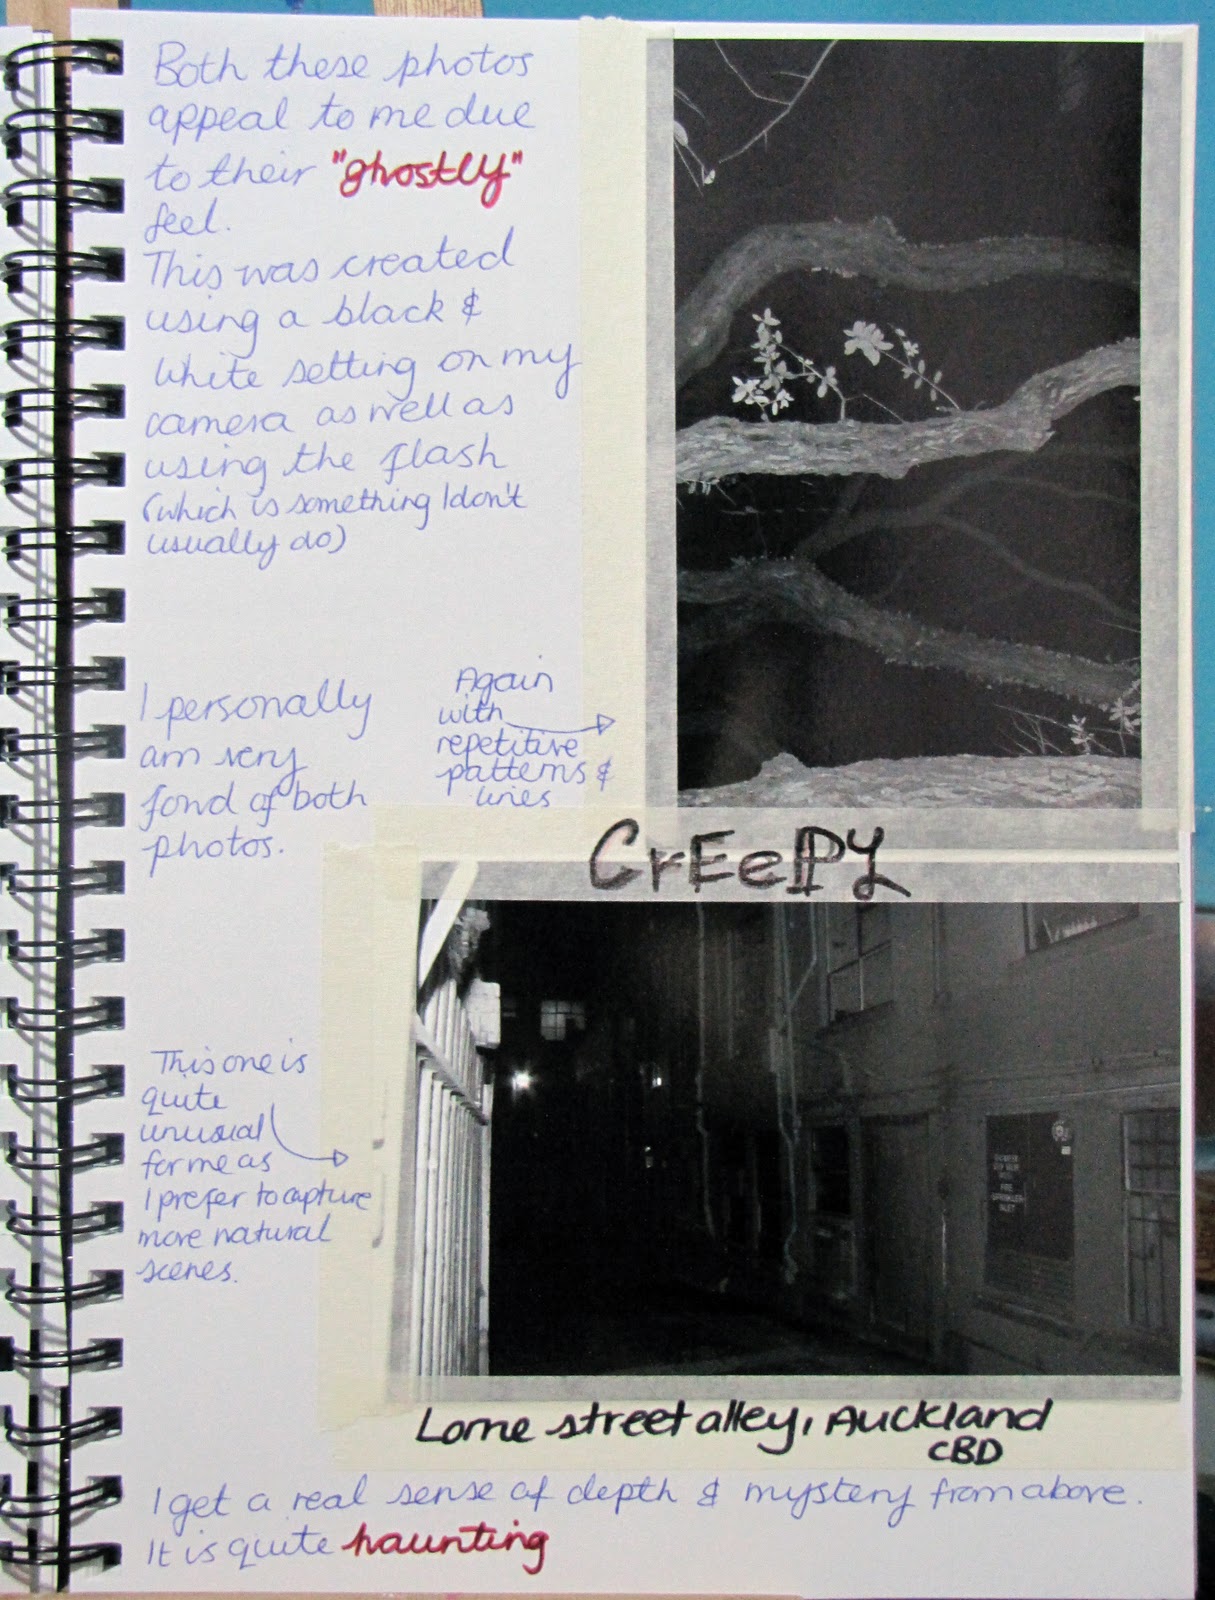 Both these photos
appeal to me due
to their "ghostly"
feel.
This was created
using a black &
white setting on my
camera as well as
using the flash
(which is something I don't
usually do)
I personally
am very
fond of both
photos.
Again
with
repetitive
patterns &
lines
CrEePY
This one is
quite
unusual
for me as
I prefer to capture
more natural
scenes.
FIRE
SPRINKLER
INLET
Lorne street alley, Auckland
CBD
I get a real sense of depth & mystery from above.
It is quite haunting